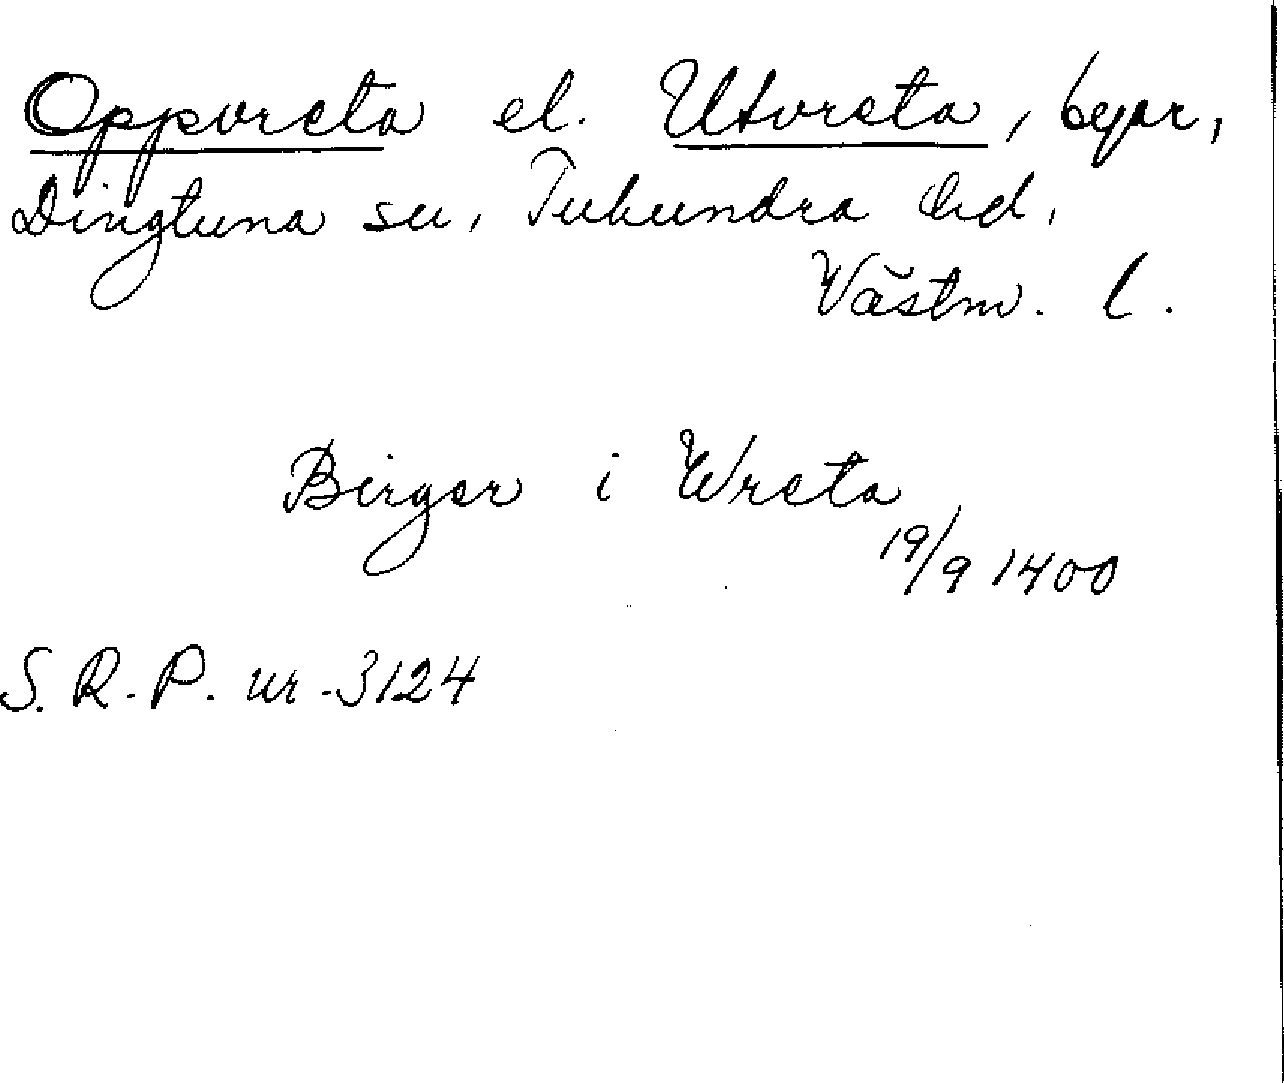 Oppvreta el. Utvreta, byar,
Dingtuna sn, Tuhundra hd,
Västm. l.
Birger i Wreta
19/9 1400
S. R. P. nr 3124